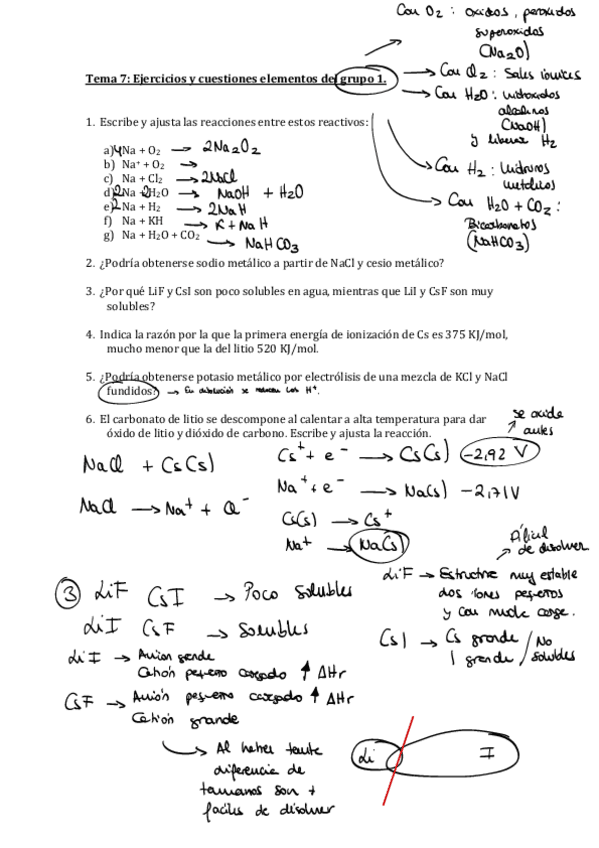 Con O₂ : oxidos, peroxidos
superoxidos
(Na₂O)
Tema 7: Ejercicios y cuestiones elementos del grupo 1.
→ Con Cl₂ : Sales iónicas
→ Con H₂O : hidroxidos
alcalinos
(NaOH)
y libera H₂
Con H₂ : hidruros
metalicos
Con H₂O + CO₂ :
Bicarbonatos
(NaHCO₃)
1. Escribe y ajusta las reacciones entre estos reactivos:
a) 4 Na + O₂ → 2Na₂O₂
b) Na⁺ + O₂ →
c) Na + Cl₂ → 2NaCl
d) 2 Na + 2H₂O → NaOH + H₂O
e) 2 Na + H₂ → 2NaH
f) Na + KH → K + NaH
g) Na + H₂O + CO₂ → NaHCO₃
2. ¿Podría obtenerse sodio metálico a partir de NaCl y cesio metálico?
3. ¿Por qué LiF y CsI son poco solubles en agua, mientras que LiI y CsF son muy
solubles?
4. Indica la razón por la que la primera energía de ionización de Cs es 375 KJ/mol,
mucho menor que la del litio 520 KJ/mol.
5. ¿Podría obtenerse potasio metálico por electrólisis de una mezcla de KCl y NaCl
fundidos? → En disolución se reducen los H⁺.
6. El carbonato de litio se descompone al calentar a alta temperatura para dar
óxido de litio y dióxido de carbono. Escribe y ajusta la reacción.
se oxida
antes
NaCl + Cs(s)
Cs⁺ + e⁻ → Cs(s) -2,92 V
NaCl → Na⁺ + Cl⁻
Na⁺ + e⁻ → Na(s) -2,71V
Cs(s) → Cs⁺
Na⁺ → Na(s)
③ LiF CsI → Poco solubles
LiI CsF → Solubles
Difícil
de disolver
LiF → Estructura muy estable
dos iones pequeños
y con mucha carga.
CsI → Cs grande / No
I grande / solubles
LiI → Anion grande
Catión pequeño cargado ↑ ΔHr
CsF → Anión pequeño cargado ↑ ΔHr
Catión grande
→ Al haber tanta
diferencia de
tamaños son +
faciles de disolver
Li I